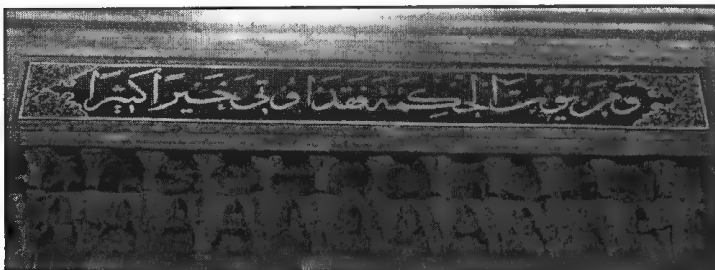 ومن يؤت الحكمة فقد اوتى خيرا كثيرا